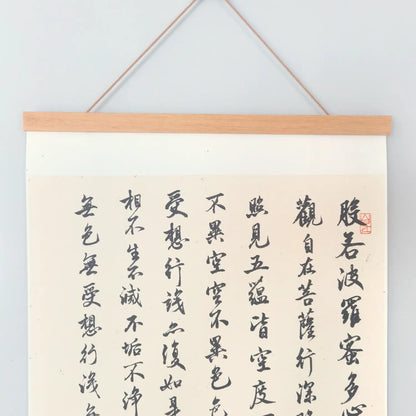 般若波羅蜜多心
觀自在菩薩行深
照見五蘊皆空度
不異空空不異色
受想行識亦復如是
相不生不滅不垢不淨
無色無受想行識